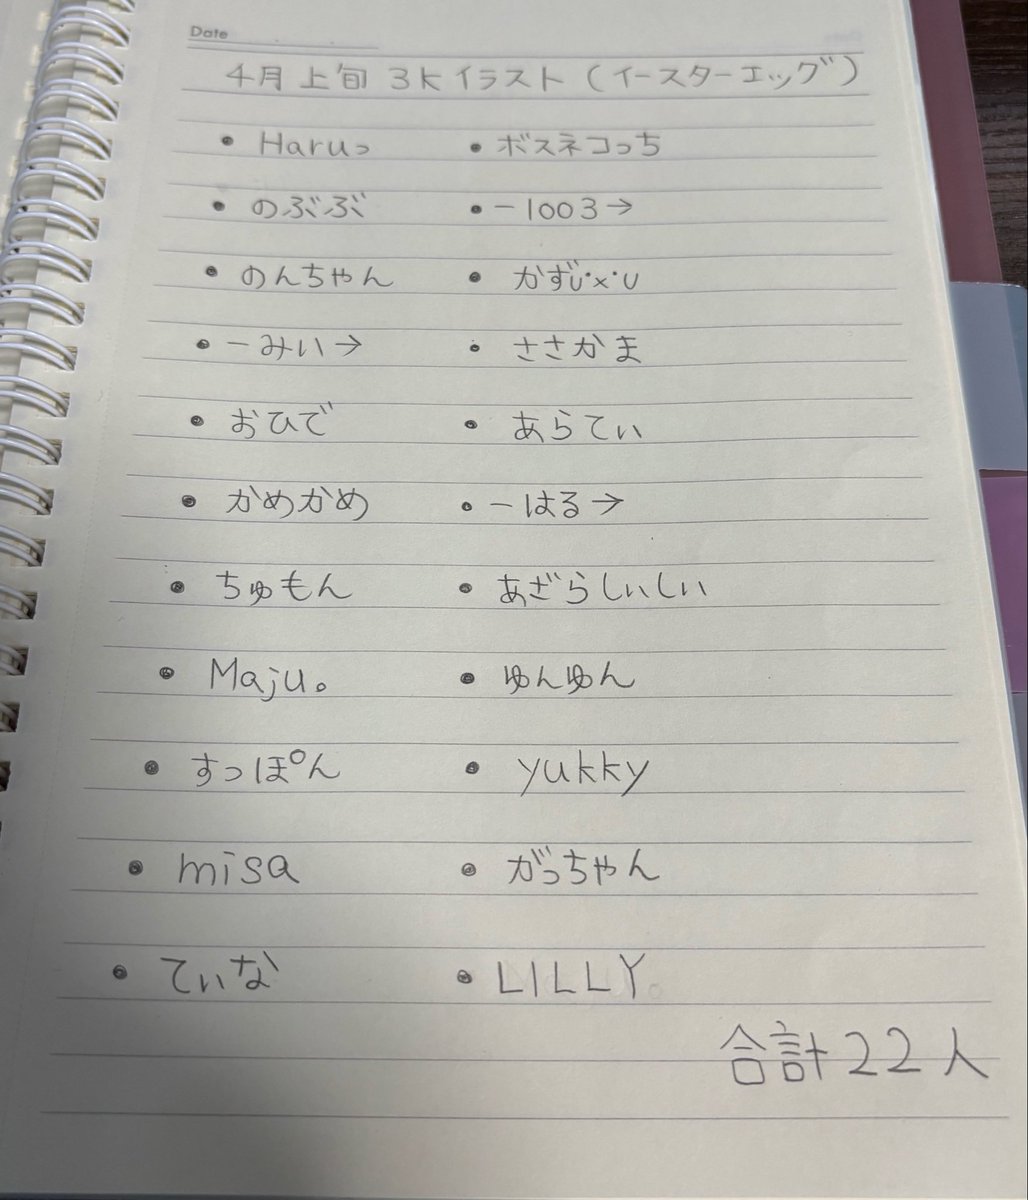 Date
4月上旬 3kイラスト(イースターエッグ)
• Haruっ • ボスネコっち
• のぶぶ • －1003→
• のんちゃん • かずU･x･U
• －みい→ • ささかま
• おひで • あらてぃ
• かめかめ • －はる→
• ちゅもん • あざらしぃしぃ
• Maju。 • ゆんゆん
• すっぽん • yukky
• misa • がっちゃん
• てぃな • LILLY.
合計22人